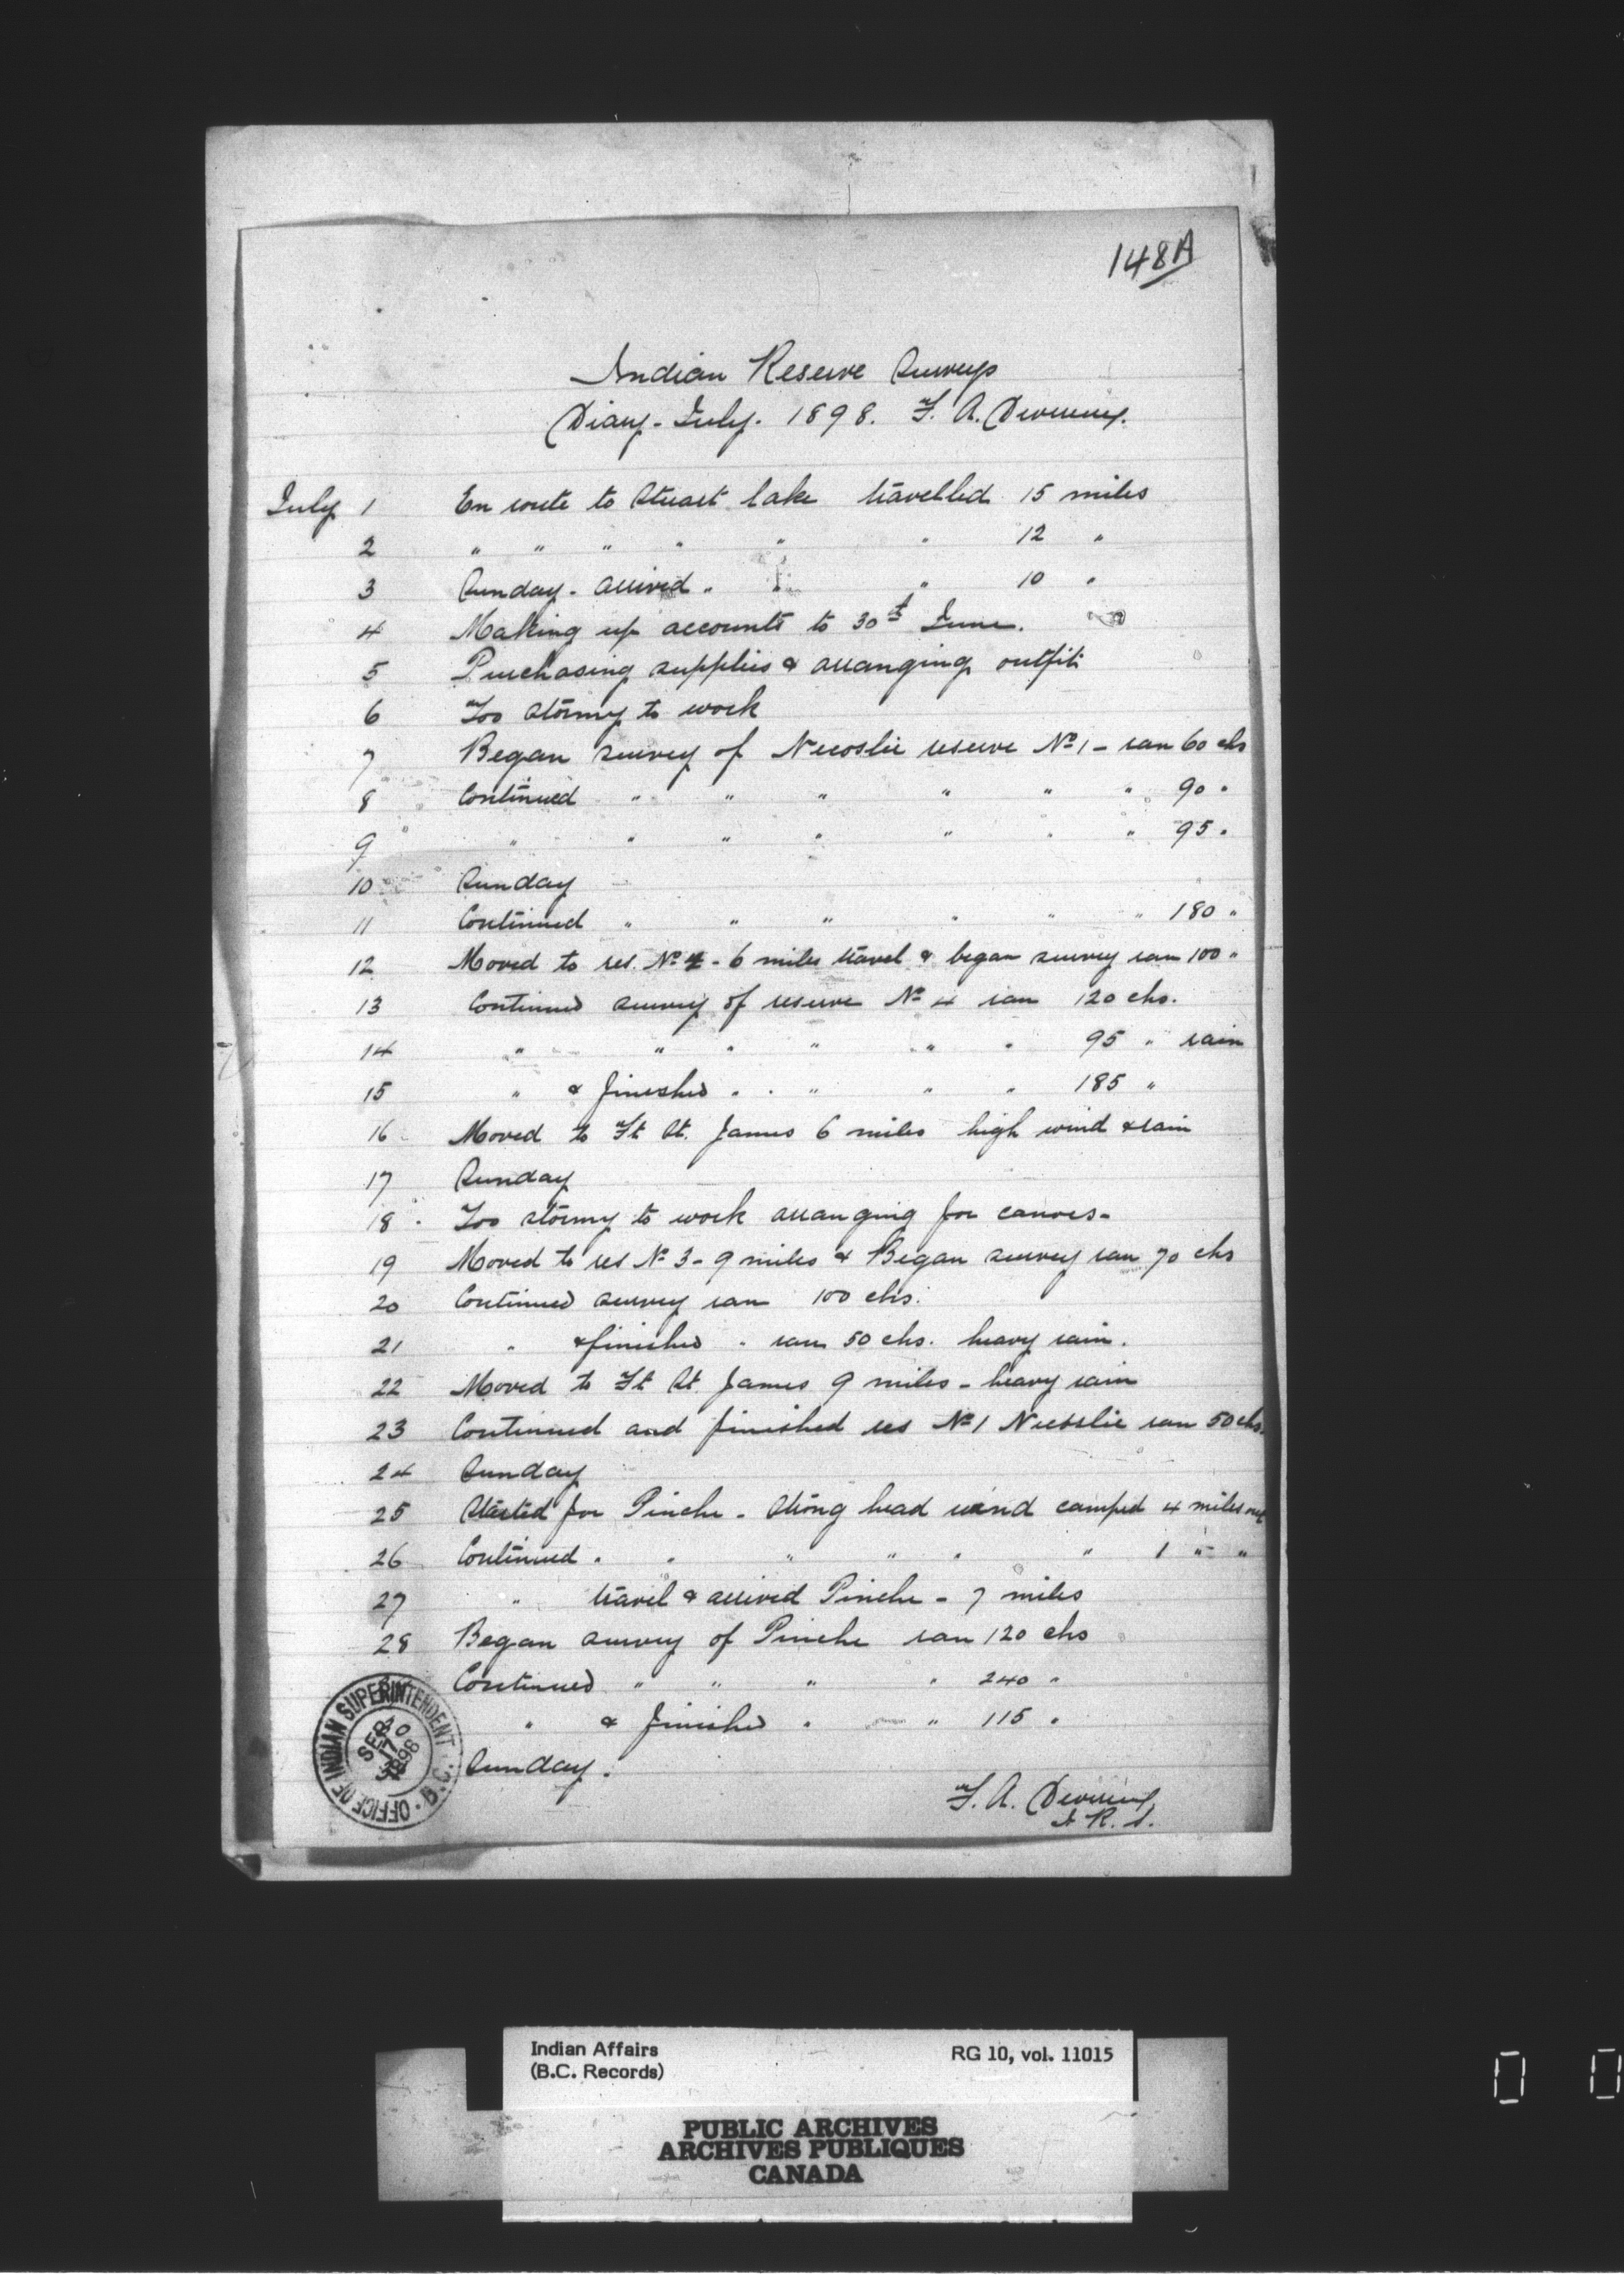 148A
Indian Reserve Surveys
Diary - July. 1898. F. A. Devereux.
July 1 En route to Stuart lake travelled 15 miles
2 " " " " " " 12 "
3 Sunday - arrived " " " 10 "
4 Making up accounts to 30th June.
5 Purchasing supplies & arranging outfit
6 Too stormy to work
7 Began survey of Necoslie reserve No 1 - ran 60 chs
8 Continued " " " " " " 90 "
9 " " " " " " " 95 "
10 Sunday
11 Continued " " " " " " 180 "
12 Moved to res. No 4 - 6 miles travel & began survey ran 100 "
13 Continued survey of reserve No 4 ran 120 chs.
14 " " " " " " 95 " rain
15 " & finished " " " " " 185 "
16 Moved to Ft St. James 6 miles high wind & rain
17 Sunday
18 Too stormy to work arranging for canoes -
19 Moved to res No 3 - 9 miles & Began survey ran 70 chs
20 Continued survey ran 100 chs.
21 " & finished " ran 50 chs. heavy rain.
22 Moved to Ft St. James 9 miles - heavy rain
23 Continued and finished res No 1 Necoslie ran 50 chs.
24 Sunday
25 Started for Pinche - Strong head wind camped 4 miles out
26 Continued " " " " " " 1 " "
27 " travel & arrived Pinche - 7 miles
28 Began survey of Pinche ran 120 chs
Continued " " " " 240 "
30 " & finished " " 115 "
31 Sunday.
F. A. Devereux
I. R. S.
OFFICE OF INDIAN SUPERINTENDENT B.C.
SEP 17 1898
Indian Affairs
(B.C. Records)
RG 10, vol. 11015
PUBLIC ARCHIVES
ARCHIVES PUBLIQUES
CANADA